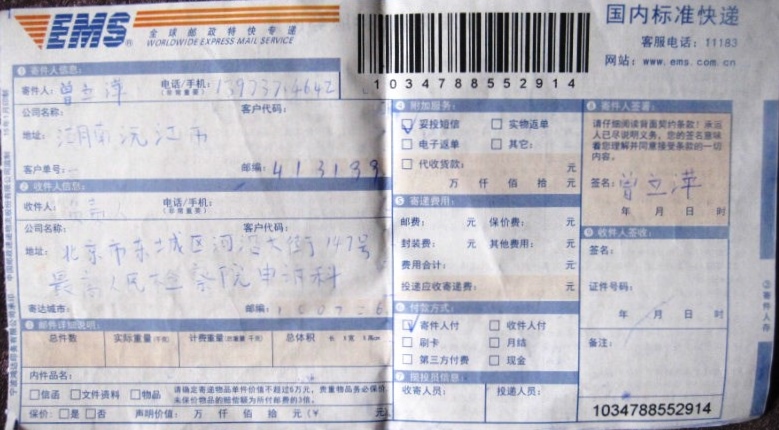 EMS
全球邮政特快专递
WORLDWIDE EXPRESS MAIL SERVICE
国内标准快递
客服电话：11183
网站：www.ems.com.cn
1034788552914
① 寄件人信息：
寄件人：曾立萍 电话/手机：13973714642
(非常重要)
公司名称： 客户代码：
地址：湖南沅江市
客户单号： 邮编：413199
② 收件人信息：
收件人： 电话/手机：
(非常重要)
公司名称： 客户代码：
地址：北京市东城区河沿大街147号
最高人民检察院申诉科
寄达城市： 邮编：
③ 邮件详细说明：
总件数 实际重量(千克) 计费重量 总体积 长 宽 高
内件品名：
信函 文件资料 物品 请确定寄递物品单件价值不超过6万元，贵重物品务必保价，
未保价物品的赔偿额为所付邮费的3倍。
保价：是 否 声明价值： 万 仟 佰 拾 元（￥ 元）
④ 附加服务：
妥投短信 实物返单
电子返单 其它：
代收货款： 元
万 仟 佰 拾 元
⑤ 寄递费用：
邮费： 元 保价费： 元
封装费： 元 其他费用： 元
费用合计： 元
投递应收寄递费： 元
⑥ 付款方式：
寄件人付 收件人付
刷卡 月结
第三方付费 现金
⑦ 揽投员信息：
收寄人员： 投递人员：
⑧ 寄件人签署：
请仔细阅读背面契约条款！承运
人已尽说明义务，您的签名意味
着您理解并同意接受条款的一切
内容。
签名：曾立萍
年 月 日 时
⑨ 收件人签收：
签名：
证件号码：
年 月 日 时
备注：
1034788552914